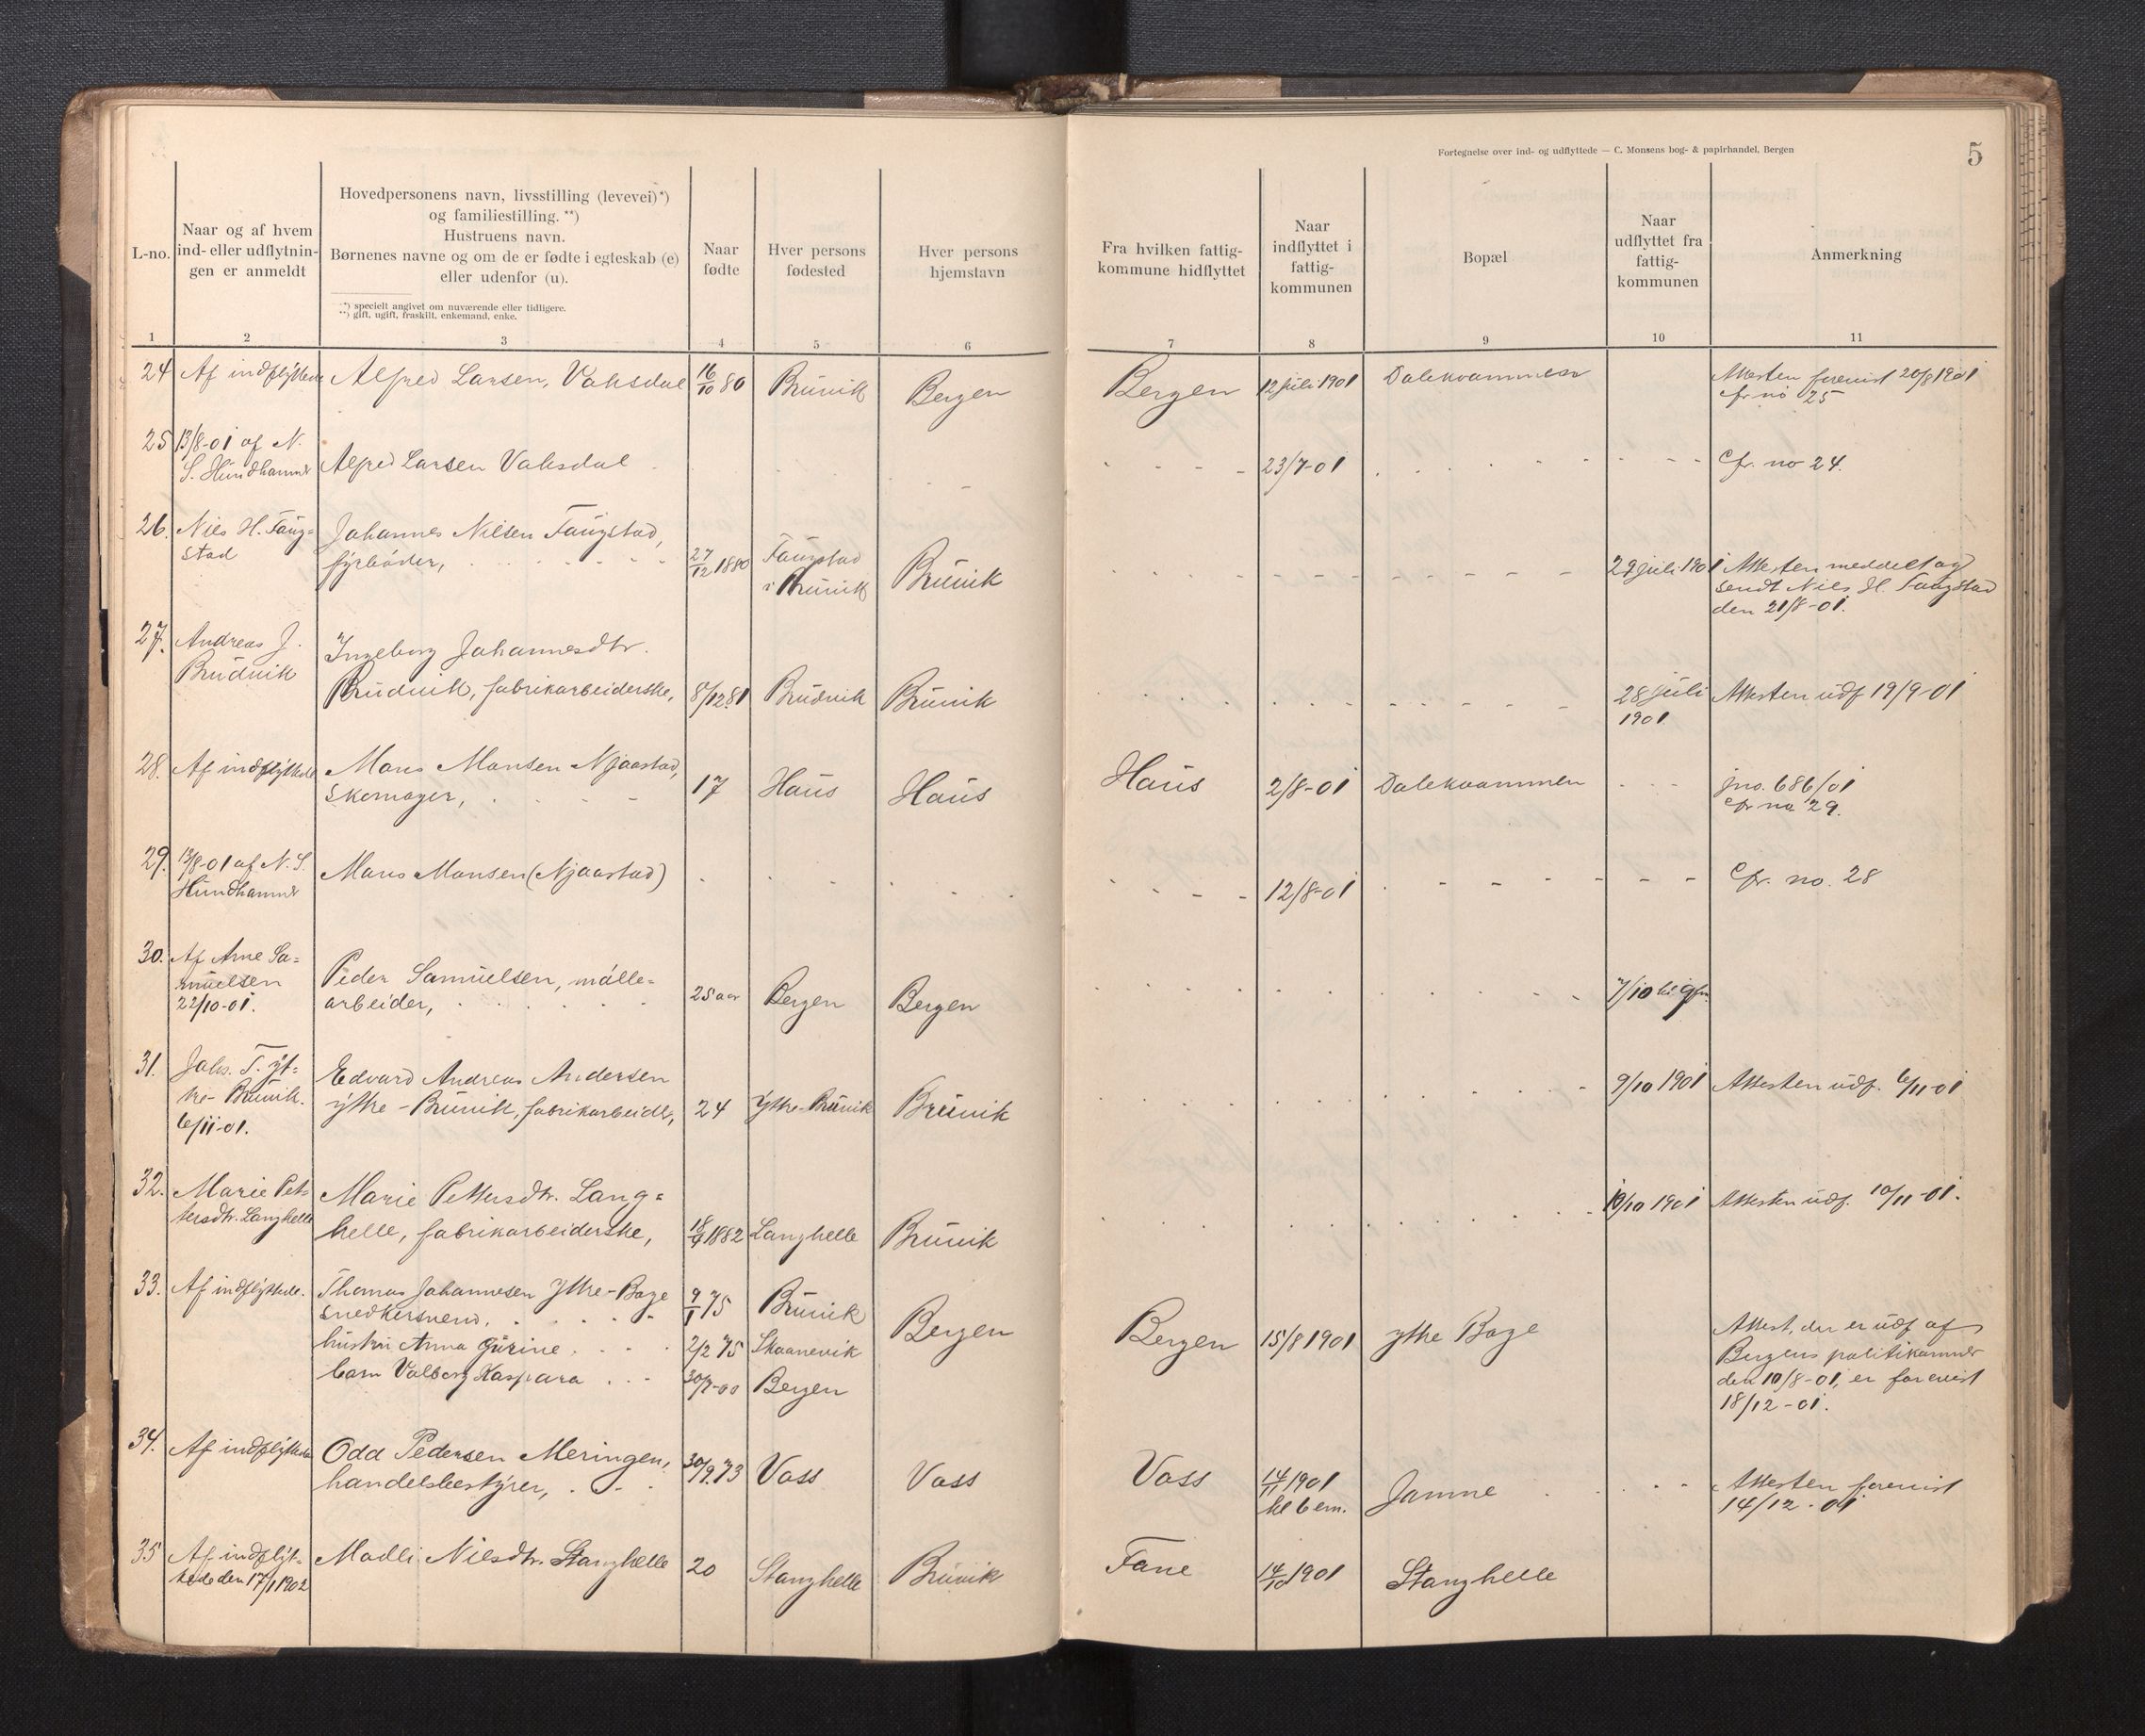 Fortegnelse over ind- og udflyttede — C. Monsens bog- & papirhandel, Bergen
5
L-no.
Naar og af hvem
ind- eller udflytnin-
gen er anmeldt
Hovedpersonens navn, livsstilling (levevei)*)
og familiestilling. **)
Hustruens navn.
Børnenes navne og om de er fødte i egteskab (e)
eller udenfor (u).
*) specielt angivet om nuværende eller tidligere.
**) gift, ugift, fraskilt, enkemand, enke.
Naar
fødte
Hver persons
fødested
Hver persons
hjemstavn
Fra hvilken fattig-
kommune hidflyttet
Naar
indflyttet i
fattig-
kommunen
Bopæl
Naar
udflyttet fra
fattig-
kommunen
Anmerkning
1 2 3 4 5 6 7 8 9 10 11
24 Af indflyttede Alfred Larsen, Vaksdal 16/10 80 Brüvik Bergen Bergen 12 juli 1901 Dalekvammen Attesten forevist 20/8 1901
cfr no 25
25 13/8-01 af N.
S. Hündhammer Alfred Larsen Vaksdal 23/7-01 Cfr. no 24.
26. Nils H. Faüg=
stad
Johannes Nilsen Faügstad,
fyrbøder, 27/12 1880
Faügstad
i Brüvik
Brüvik
29 juli 1901
Attesten meddelt og
sendt Nils H. Faügstad
den 21/8-01.
27. Andreas J.
Brüdvik
Ingeborg Johannesdtr.
Brüdvik, fabrikarbeiderske, 8/12 81 Brüdvik Brüvik
28 juli
1901
Attesten üdf 19/9-01
28. Af indflyttede Mons Monsen Njaastad,
skomager, 17 Haüs Haüs Haüs 2/8-01 Dalekvammen jno. 686/01
cfr no 29.
29. 13/8-01 af N. S.
Hündhammer Mons Monsen (Njaastad) 12/8-01 Cfr. no. 28
30. Af Arne Sa=
müelsen
22/10-01.
Peder Samüelsen, mølle=
arbeider, 25 aar Bergen Bergen 7/10 kl 9 fm.
31. Johs. T. yt=
re- Brüvik.
6/11-01.
Edvard Andreas Andersen
ytre-Brüvik, fabrikarbeider, 24 Ytre-Brüvik Brüvik 9/10 1901 Attesten üdf. 6/11-01
32. Marie Pet=
tersdtr. Langhelle
Marie Pettersdtr. Lang=
helle, fabrikarbeiderske, 18/9 1882 Langhelle Brüvik 10/10 1901 Attesten üdf. 10/11-01.
33. Af indflyttede. Thomas Johannesen Ytre-Boge
snedkersvend, 9/1 75 Brüvik
hüstrü Anna Gürine 2/2 75 Skaanevik
barn Valborg Kaspara 30/7-00 Bergen
Bergen Bergen 15/8 1901 ytre Boge
Attest, der er üdf. af
Bergens politikammer
den 10/8-01, er forevist
18/12-01.
34. Af indflyttede Odd Pedersen Meringen,
handelsbestyrer, 30/9 73 Voss Voss Voss 14/11 1901
kl 6 em. Jamne Attesten forevist
14/12-01
35 Af indflyt=
tede den 17/1 1902 Madli Nilsdtr. Stanghelle 20 Stanghelle Brüvik Fane 14/10 1901 Stanghelle